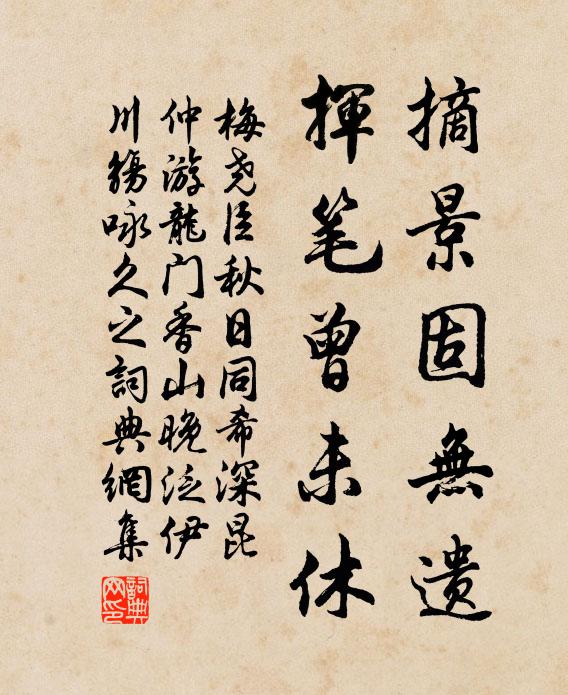 摘景固無遗
揮笔曾未休
梅尧臣秋日同希深昆
仲游龍门香山晚泛伊
川觞咏久之詞典網集
詞典网印